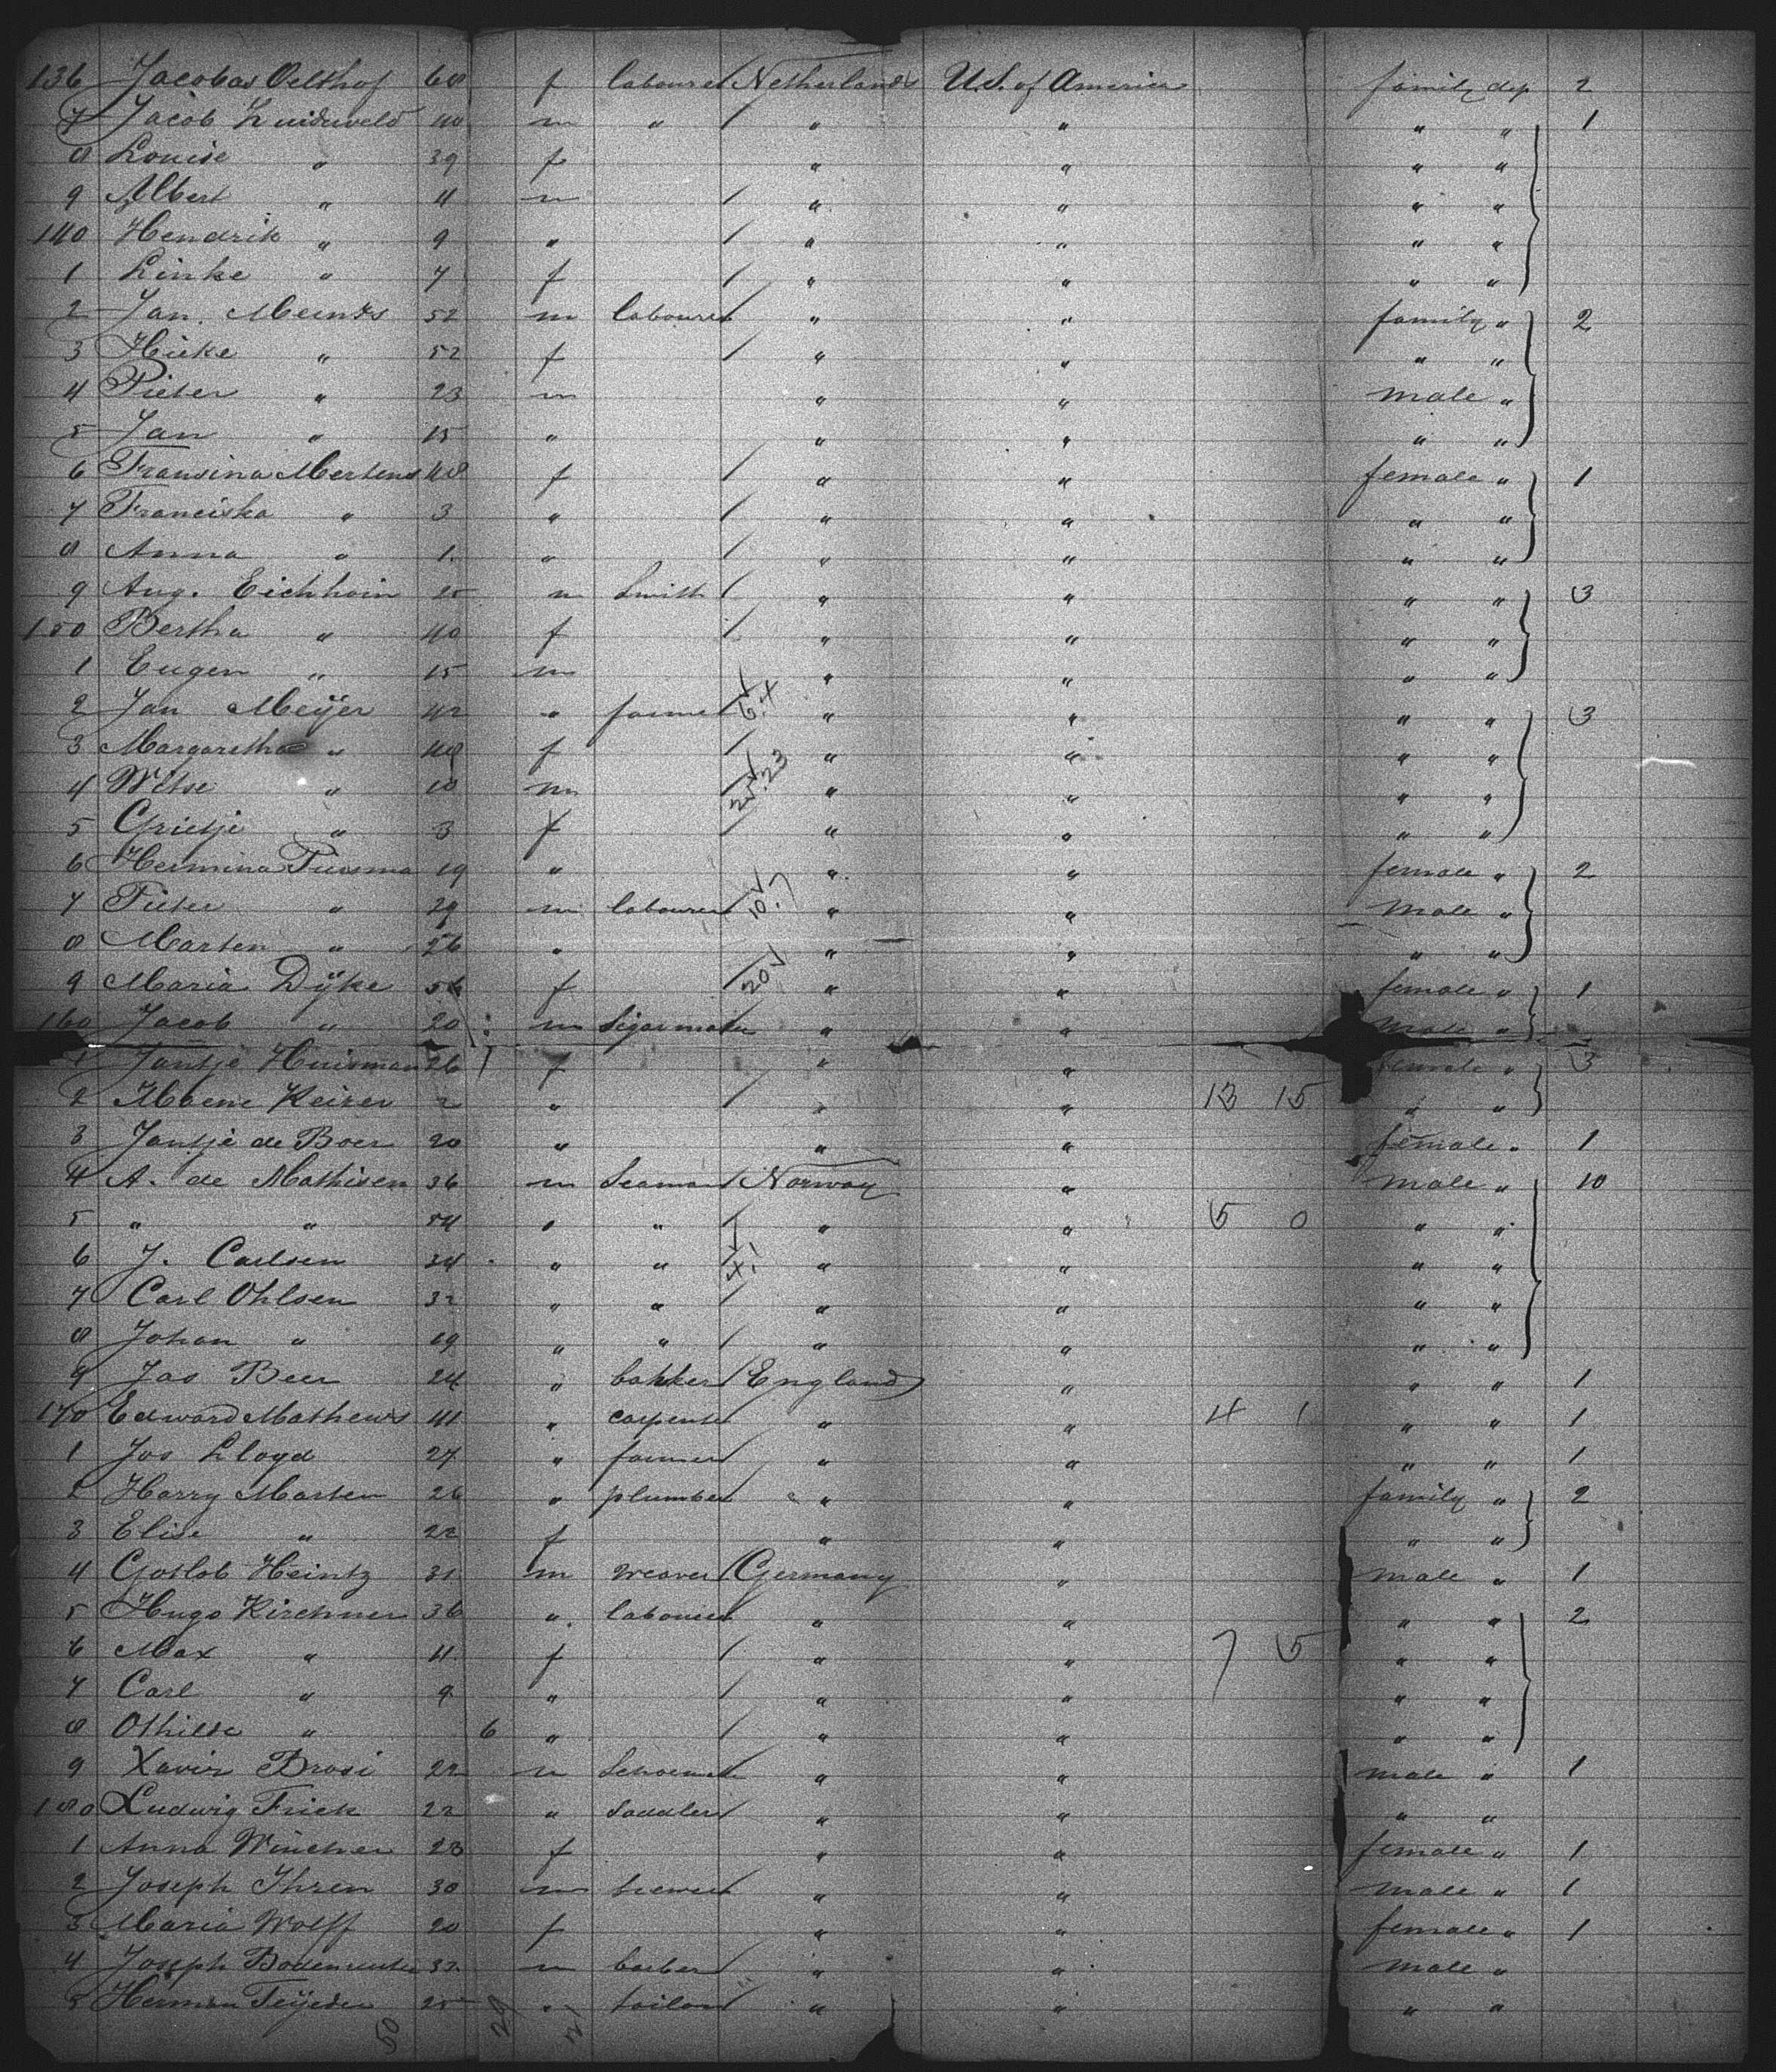 136 Jacobus Oelthof 68 f labourer Netherlands U.S. of America family dep 2
7 Jacob Zuidweld 40 m " / " " " " 1
8 Louise " 39 f " " " "
9 Albert " 11 m / " " " "
140 Hendrik " 9 " / " " " "
1 Linke " 7 f / " " " "
2 Jan Meints 52 m labourer " " family " 2
3 Hieke " 52 f / " " " "
4 Pieter " 23 m " " male "
5 Jan " 15 " " " " "
6 Fransina Mertens 48 f / " " female " 1
7 Franciska " 3 " / " " " "
8 Anna " 1 " / " " " "
9 Aug. Eichhoin 25 m Smith / " " " " 3
150 Bertha " 40 f / " " " "
1 Eugen " 15 m " " " "
2 Jan Meijer 42 " farmer 6.4 " " " " 3
3 Margaretha " 48 f / " " " "
4 Witse " 10 m 25.23 " " " "
5 Grietje " 3 f / " " " "
6 Hermina 19 " " " female " 2
7 Pieter " 29 m labourer 10.7 " " male "
8 Marten " 26 " " " " "
9 Maria Dijke 56 f 20 " " female " 1
160 Jacob " 20 m Sigarmaker " " male "
1 Jantje Huisman 26 f " " female " 3
2 Keizer 2 " / " " 13 15 " "
3 Jantje de Boer 20 " " " female " 1
4 A. de Mathisen 36 m Seaman Norway " male " 10
5 " " 54 " " / " " 5 0 " "
6 J. Carlsen 34 " " / " " " "
7 Carl Ohlsen 32 " " / " " " "
8 Johan " 19 " " / " " " "
9 Jas Beer 24 " bakker England " " " 1
170 Edward Mathews 41 " carpenter " " 4 1 " " 1
1 Jos Lloyd 27 " farmer " " " " 1
2 Harry Marten 26 " plumber " " family " 2
3 Elise " 22 f " " " "
4 Gotlob Heintz 31 m weaver Germany " male " 1
5 Hugo Kirchner 36 " labourer " " " " 2
6 Max " 11 f / " " 7 5 " "
7 Carl " 9 " / " " " "
8 Othilde " 6 " / " " " "
9 Xavir Brosi 22 m " " male " 1
180 Ludwig Frick 22 " Saddler " " " "
1 Anna 23 f " " female " 1
2 Joseph Ihren 30 m brewer " " male " 1
3 Maria Wolff 20 f " " female " 1
4 Joseph 32 m barber " " male "
5 Herman 25 " tailor " " " "
50 29 21